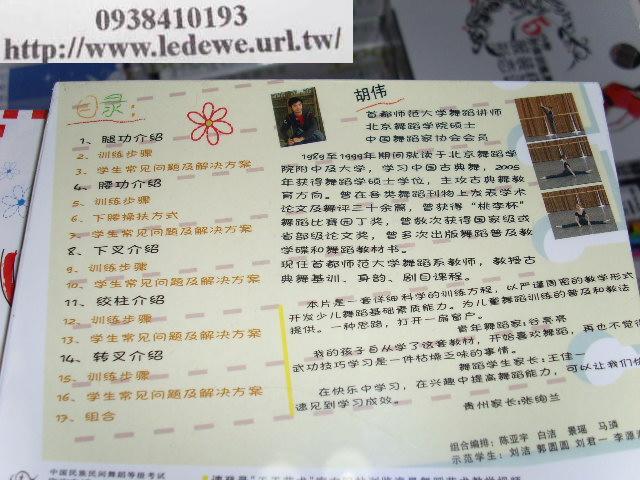 0938410193
http://www.ledewe.url.tw/
目录:
1、腿功介绍
2、训练步骤
3、学生常见问题及解决方案
4、腰功介绍
5、训练步骤
6、下腰操扶方式
7、学生常见问题及解决方案
8、下叉介绍
9、训练步骤
10、学生常见问题及解决方案
11、绞柱介绍
12、训练步骤
13、学生常见问题及解决方案
14、转叉介绍
15、训练步骤
16、学生常见问题及解决方案
17、组合
胡伟
首都师范大学舞蹈讲师
北京舞蹈学院硕士
中国舞蹈家协会会员
1989至1999年期间就读于北京舞蹈学
院附中及大学，学习中国古典舞，2005
年获得舞蹈学硕士学位，主攻古典舞教
育方向。曾在各类舞蹈刊物上发表学术
论文及舞评二十余篇，曾获得“桃李杯”
舞蹈比赛园丁奖，曾数次获得国家级或
省部级论文奖，曾多次出版舞蹈普及教
学碟和舞蹈教材书。
现任首都师范大学舞蹈系教师，教授古
典舞基训、身韵、剧目课程。
本片是一套详细科学的训练方程，以严谨周密的教学形式
开发少儿舞蹈基础素质能力。为儿童舞蹈训练的普及和教法
提供。一种思路，打开一扇窗户。
青年舞蹈家:谷亮亮
我的孩子自从学了这套教材，开始喜欢舞蹈，再也不觉得
武功技巧学习是一件枯燥乏味的事情。
舞蹈学生家长:王佳一
在快乐中学习，在兴趣中提高舞蹈能力，可以让我们快
速见到学习成效。
贵州家长:张绚兰
组合编排：陈亚宇 白洁 景瑶 马璘
示范学生：刘洁 郭圆圆 刘君一 李源
中国民族民间舞蹈等级考试